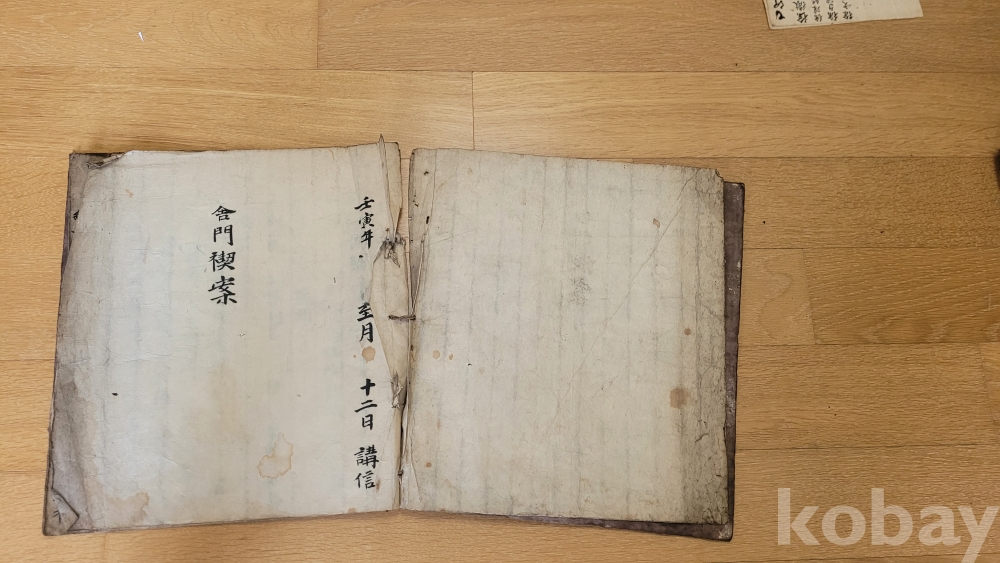 壬寅年 至月 十二日 講信
舍門禊案
kobay